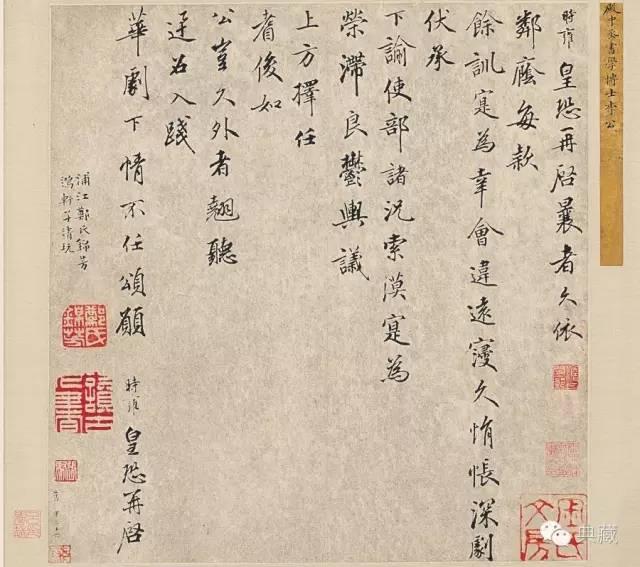 殿中丞書學博士李公
時雍 皇恐再啓曩者久依
鄰廕每款
餘訓寔為幸會違遠寖久悵深劇
伏承
下諭使部諸況索漠寔為
榮滯良鬱輿議
上方擇任
耆俊如
公豈久外者翹聽
召入踐
華劇下情不任頌願
時雍 皇恐再啓
浦江鄭氏芳
鴻軒清玩
典藏